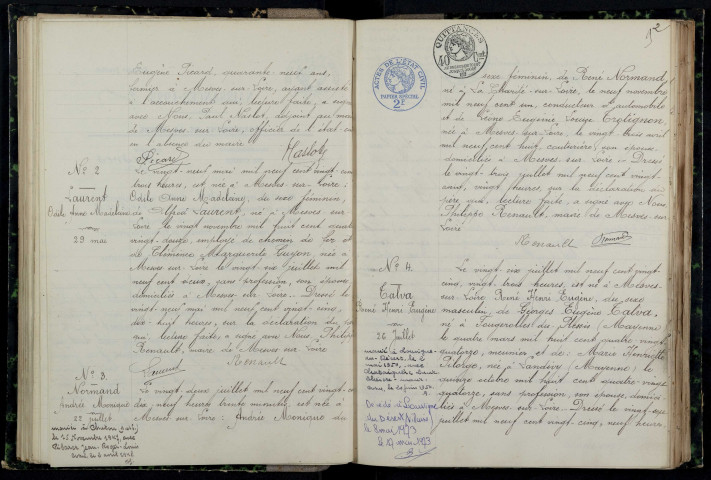 Eugène Picard, quarante neuf ans,
à Mesves-sur-Loire, ayant assisté
à l'accouchement qui, lecture faite, a signé
avec Nous, Paul Maslot, adjoint au maire
de Mesves-sur-Loire, officier de l'état civil
en l'absence du maire
Picard
N° 2
Laurent
Odile Anne Madeleine
29 mai
Le vingt-neuf mai mil neuf cent vingt-cinq
trois heures, est née à Mesves-sur-Loire:
Odile Anne Madeleine, de sexe féminin,
de Alfred Laurent, né à Mesves-sur-
Loire, le vingt novembre mil huit cent quatre
vingt-douze, employé de chemin de fer et
de Clémence Marguerite Guyon, née à
Mesves-sur-Loire le vingt-six juillet mil
neuf cent deux, sans profession, son épouse
domiciliés à Mesves-sur-Loire. Dressé le
vingt-neuf mai mil neuf cent vingt-cinq,
dix-huit heures, sur la déclaration du père
qui, lecture faite, a signé avec Nous Philippe
Renault, maire de Mesves-sur-Loire
Laurent Renault
N° 3
Normand
Andrée Monique
22 juillet
le 15 Novembre 1947, avec
Jean Roger Louis
Le vingt-deux juillet mil neuf cent vingt-cinq
dix-neuf heures trente minutes est née à
Mesves-sur-Loire: Andrée Monique du
52
QUITTANCES
ACTES DE L'ÉTAT CIVIL
PAPIER SPÉCIAL
2F
sexe féminin, de René Normand
né à La Charité-sur-Loire, le neuf novembre
mil neuf cent un, conducteur d'automobile
et de Léone Eugénie Louise
née à Mesves-sur-Loire, le vingt trois avril
mil neuf cent huit, couturière, son épouse
domiciliés à Mesves-sur-Loire. Dressé
le vingt-trois juillet mil neuf cent vingt-
cinq, vingt heures, sur la déclaration du
père qui, lecture faite, a signé avec Nous
Philippe Renault, maire de Mesves-sur-
Loire
Renault Normand
N° 4
Calva
René Henri Eugène
26 Juillet
Le vingt-six juillet mil neuf cent vingt-
cinq, vingt trois heures, est né à Mesves-
sur-Loire René Henri Eugène, du sexe
masculin, de Georges Eugène Calva,
né à Fougerolles-du-Plessis (Mayenne)
le quatre mars mil huit cent quatre-vingt
quatorze, meunier, et de Marie Henriette
née à Landivy (Mayenne) le
octobre mil huit cent quatre-vingt
quatorze, sans profession, son épouse, domici-
liés à Mesves-sur-Loire. Dressé le vingt-sept
juillet mil neuf cent vingt-cinq, neuf heures
Décédé à
le 8 mai 1973
le 17 mai 1973